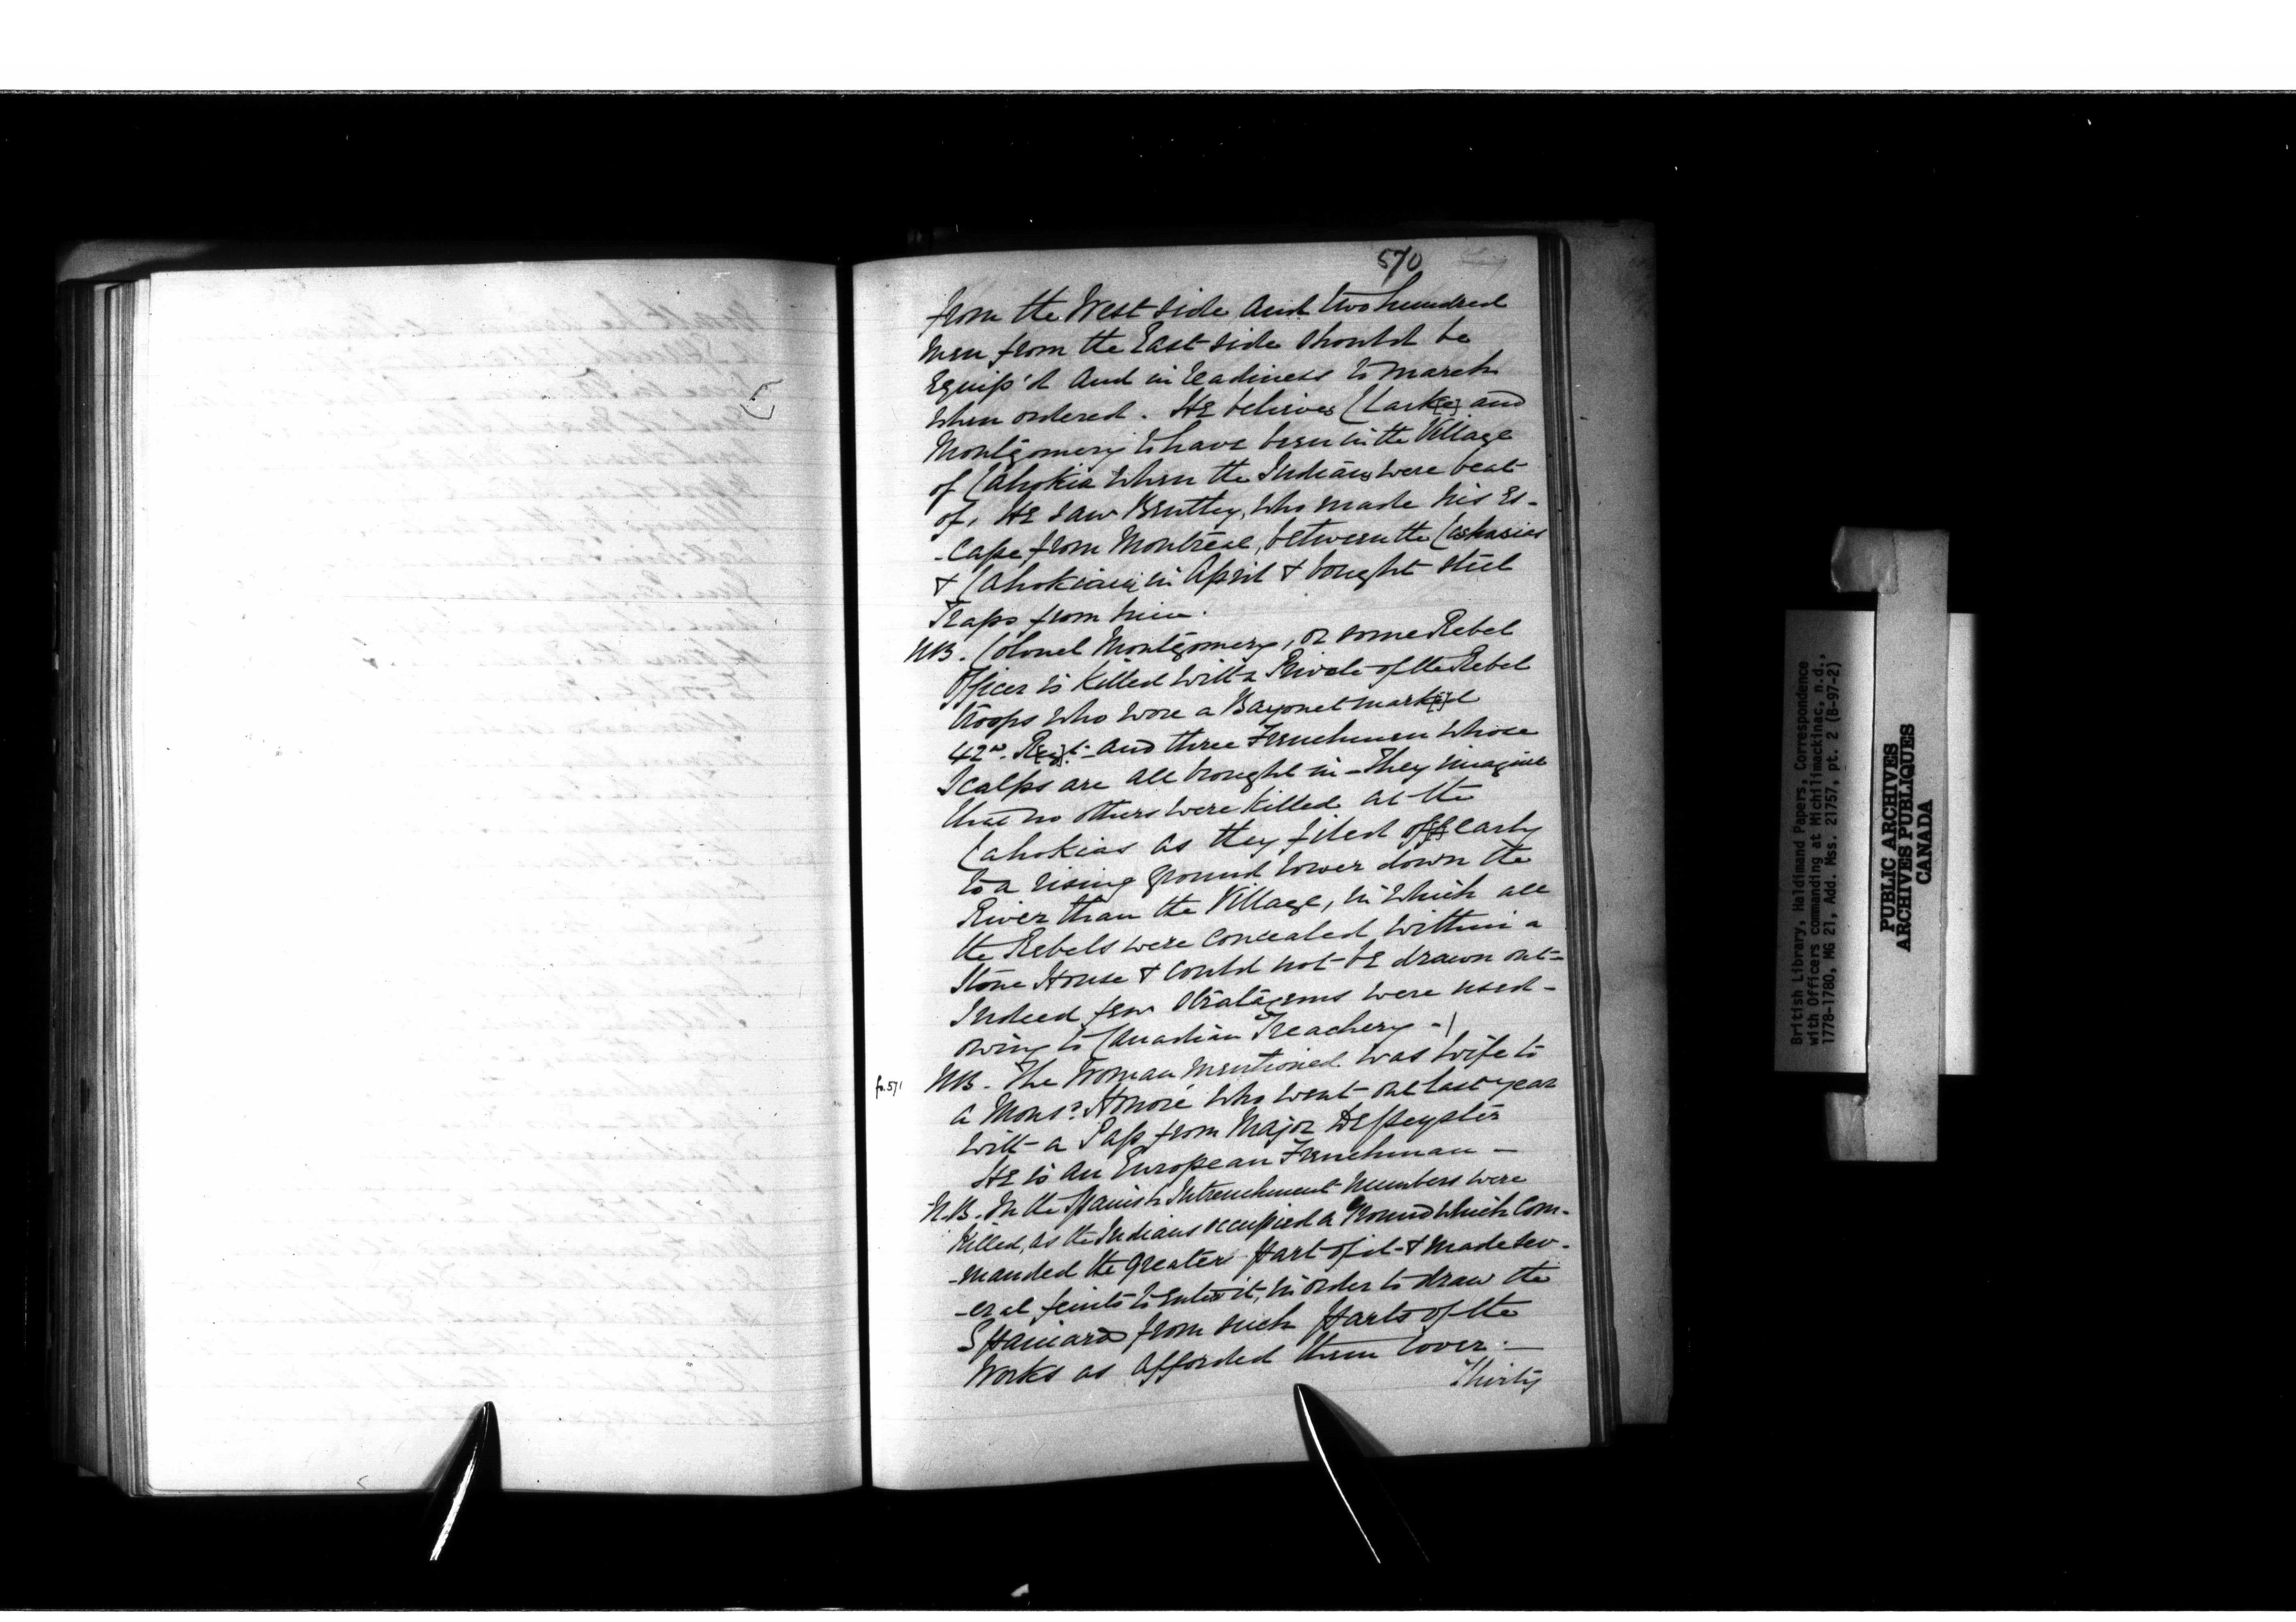 570
from the West side and two hundred
men from the East side should be
Equip'd and in readiness to march
when ordered. He believes Clark[e] and
Montgomery to have been in the Village
of Cahokia when the Indians were beat
of, He saw Bentley, who made his Es-
-cape from Montreal, between the Caskasias
& Cahokias in April & bought steel
Traps from him.
NB. Colonel Montgomery, or some Rebel
Officer is killed with a Private of the Rebel
troops who wore a Bayonet mark[e]d
42nd. Reg.t - and three Frenchmen whose
Scalps are all brought in - They imagine
that no others were killed at the
Cahokias as they filed off early
to a rising ground lower down the
River than the Village, in which all
the Rebels were concealed within a
Stone House & could not be drawn out =
Indeed few Stratagems were used -
owing to Canadian Treachery -
fo. 571
NB. The Woman mentioned was wife to
a Mons.r Honoré who went out last year
with a Pass from Major DePeyster
He is an European Frenchman —
N.B. In the Spanish Intrenchment numbers were
killed, as the Indians occupied a Ground which com-
-manded the greater part of it & made sev-
-eral feints to enter it, in order to draw the
Spaniards from such parts of the
Works as afforded them cover. —
Thirty
British Library, Haldimand Papers, Correspondence
with Officers commanding at Michilimackinac, n.d.,
1778-1780, MG 21, Add. Mss. 21757, pt. 2 (B-97-2)
PUBLIC ARCHIVES
ARCHIVES PUBLIQUES
CANADA